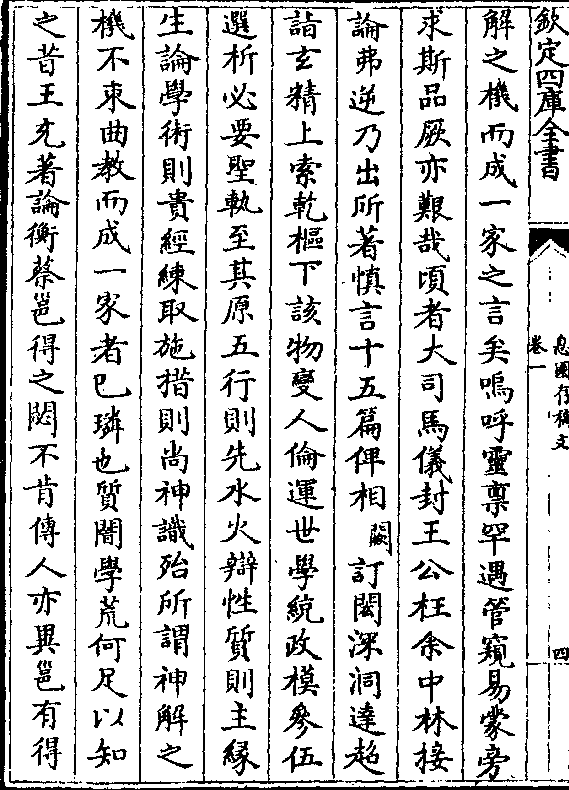 欽定四庫全書
息園存稿文
卷一
四
解之機而成一家之言矣嗚呼靈禀罕遇管窺易蒙旁
求斯品厥亦艱哉頃者大司馬儀封王公枉余中林接
論弗逆乃出所著慎言十五篇俾相闕訂閎深洞達超
詣玄精上索乾樞下該物變人倫運世學統政模參伍
選析必要聖軌至其原五行則先水火辯性質則主緣
生論學術則貴經練取施措則尚神識殆所謂神解之
機不束曲教而成一家者已璘也質闇學荒何足以知
之昔王充著論衡蔡邕得之閟不肯傳人亦異邕有得